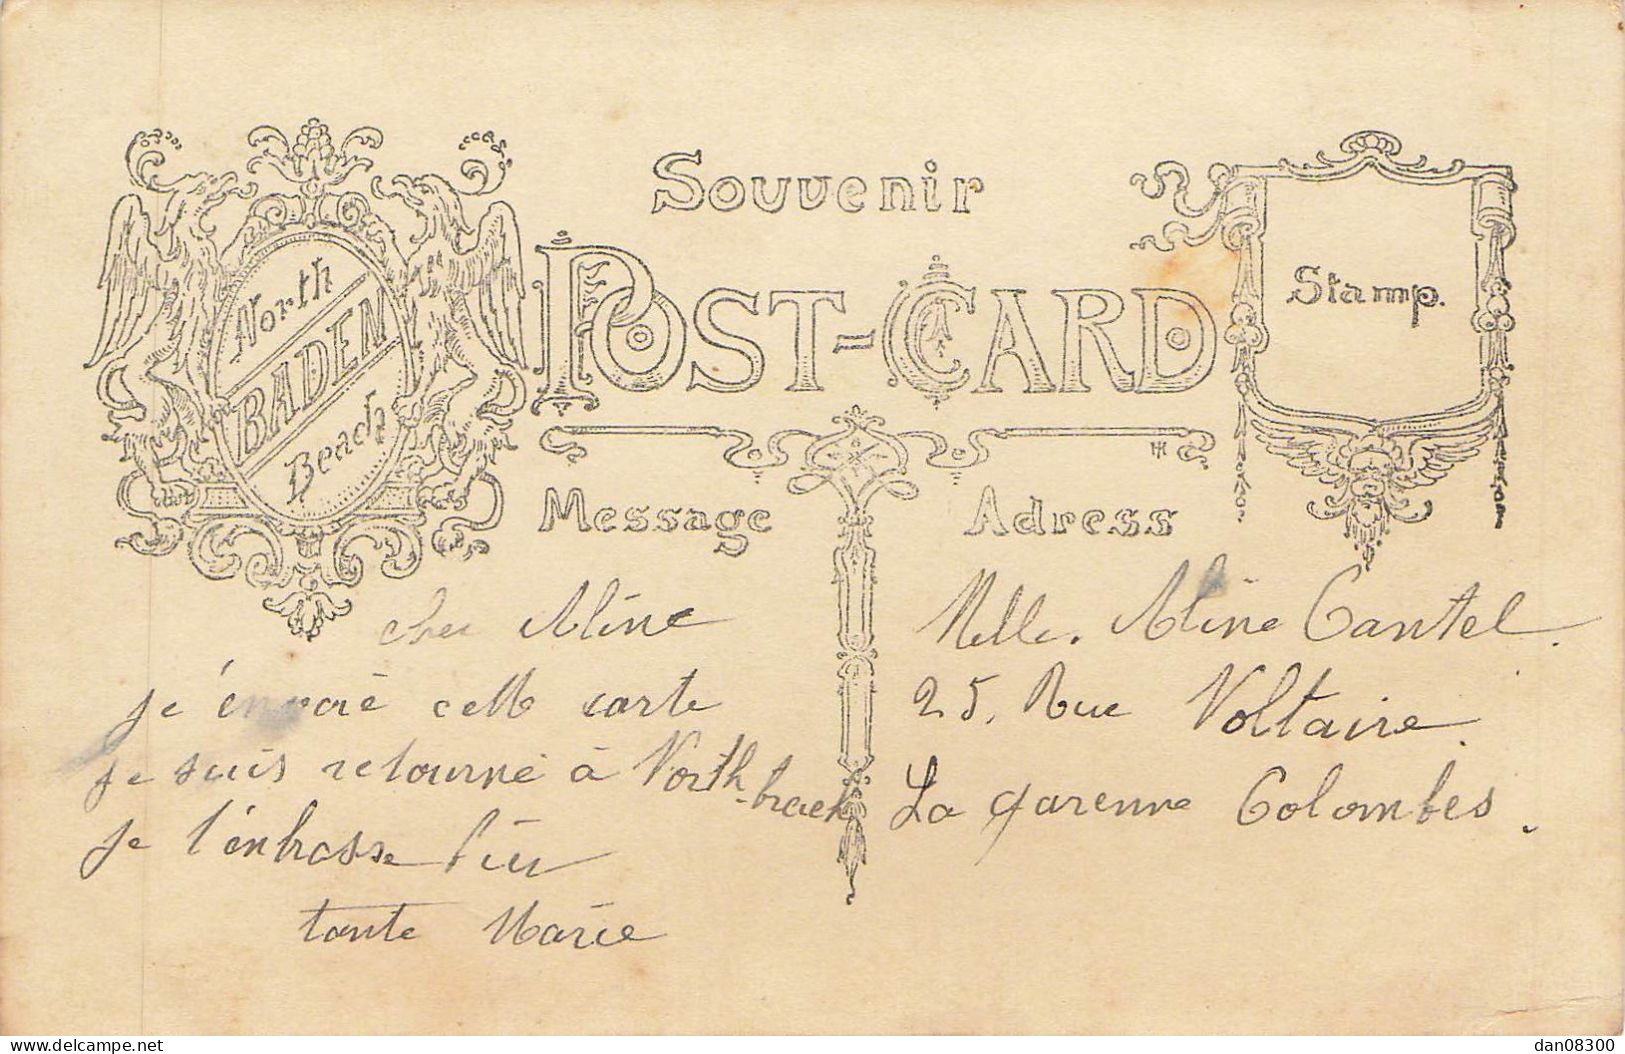 Souvenir
North
BADEN
Beach
POST-CARD
Stamp.
Message
Adress
cher Aline
je envoie cette carte
je suis retourne à North
-beach
je t'enbrasse bien
tante Marie
Melle. Aline Cantel.
25. Rue Voltaire.
La garenne Colombes.
delcampe.net
dan08300